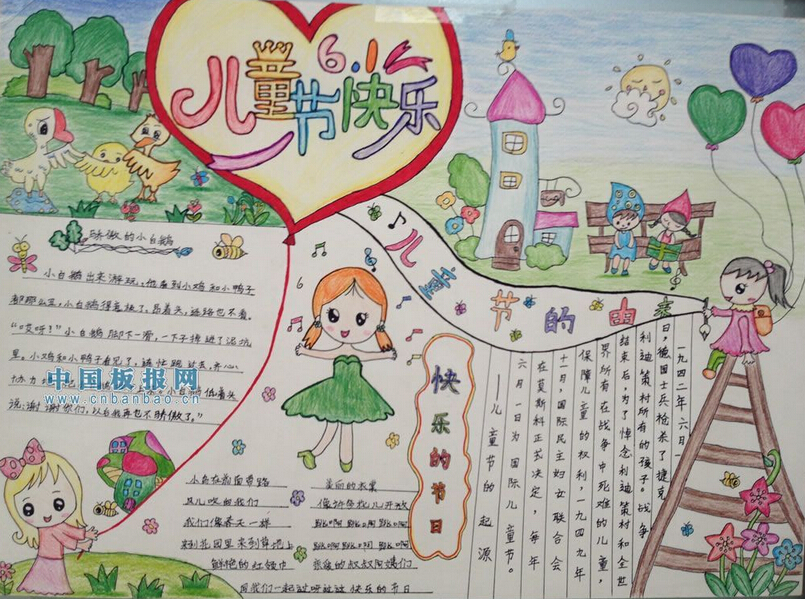 6.1
儿童节快乐
骄傲的小白鹅
小白鹅出来游玩,他看到小鸡和小鸭子
都那么丑,小白鹅得意极了,昂着头,连路也不看。
“哎呀!”小白鹅脚下一滑,一下子掉进了泥坑
里。小鸡和小鸭子看见了,连忙跑过去,齐心
协力
小白鹅低着头
说:谢谢你们,以后我再也不骄傲了。”
中国板报网
www.cnbanbao.cn
儿童节的由来
一九四二年六月
日,德国士兵枪杀了捷克
利迪策村所有的孩子。战争
结束后,为了悼念利迪策村和全世
界所有在战争中死难的儿童,
保障儿童的权利,一九四九年
十一月,国际民主妇女联合会
在莫斯科正式决定,每年
六月一日为国际儿童节。
——儿童节的起源
快乐的节日
小鸟在前面带路
风儿吹着我们
我们像春天一样
来到花园里来到草地上
鲜艳的红领巾
美丽的衣裳
像许多花儿开放
跳啊啊 跳啊啊 跳啊啊
跳啊啊 跳啊啊 跳啊啊
亲爱的叔叔阿姨们
同我们一起过呀过这快乐的节日